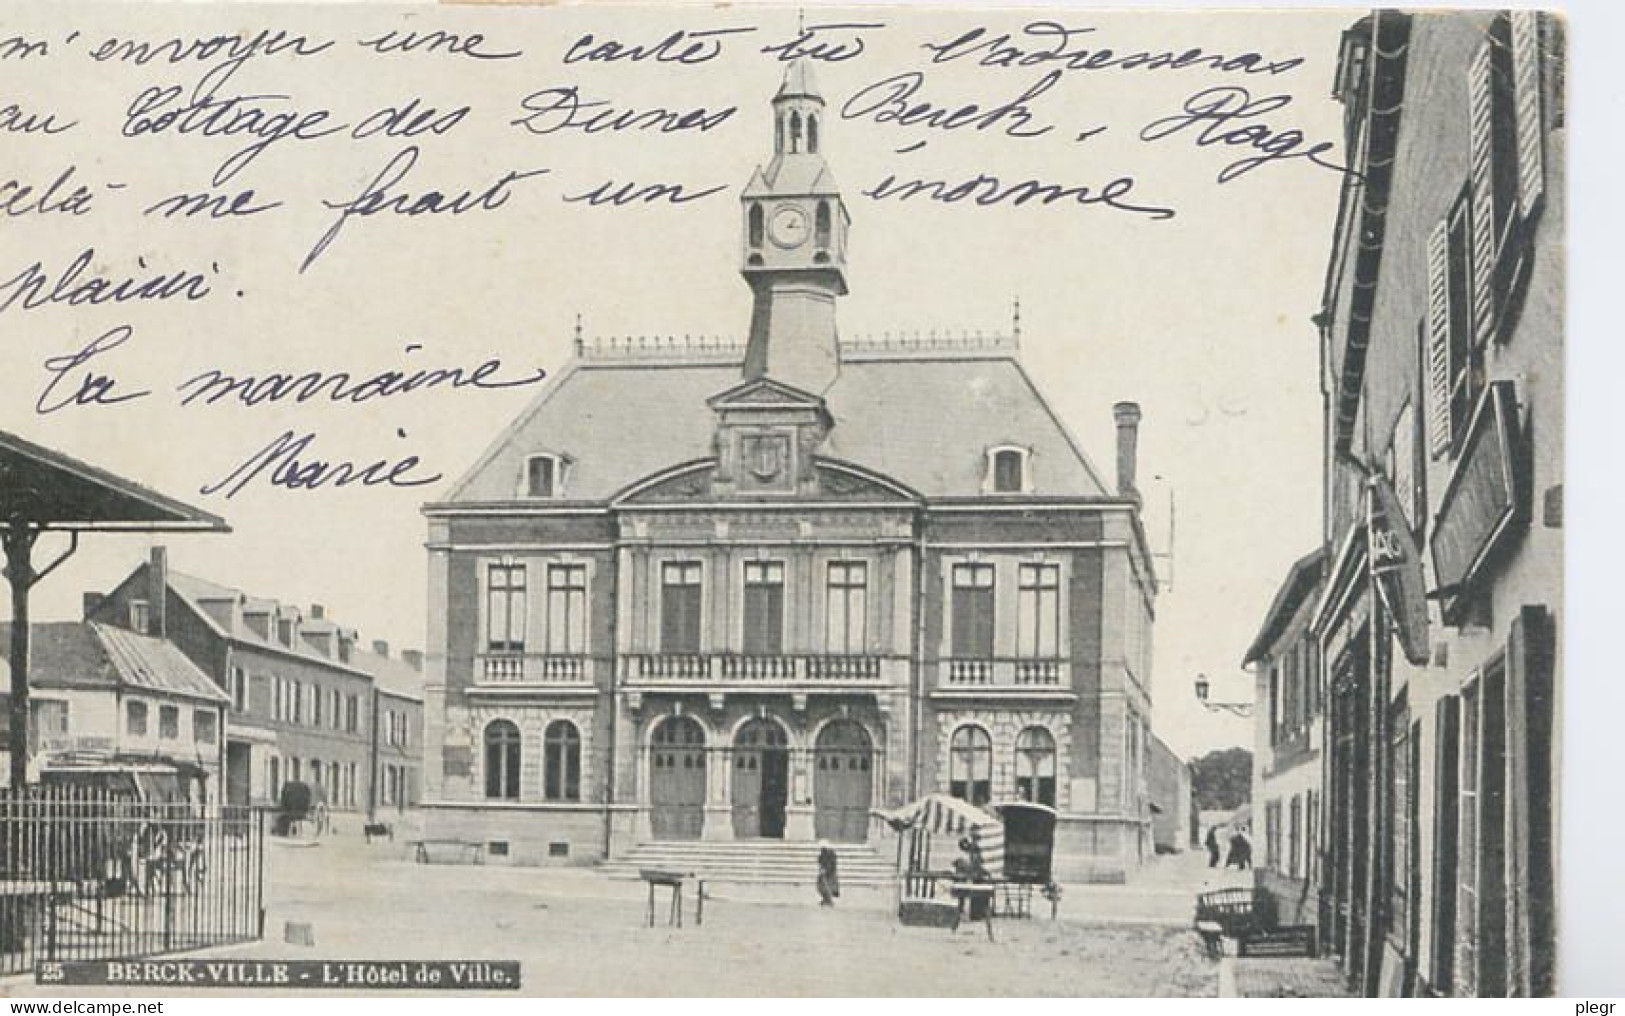 m'envoyer une carte tu l'adresseras
au Cottage des Dunes Berck, Plage
celà me ferait un énorme
plaisir.
Ta marraine
Marie
25 BERCK-VILLE - L'Hôtel de Ville.
plegr